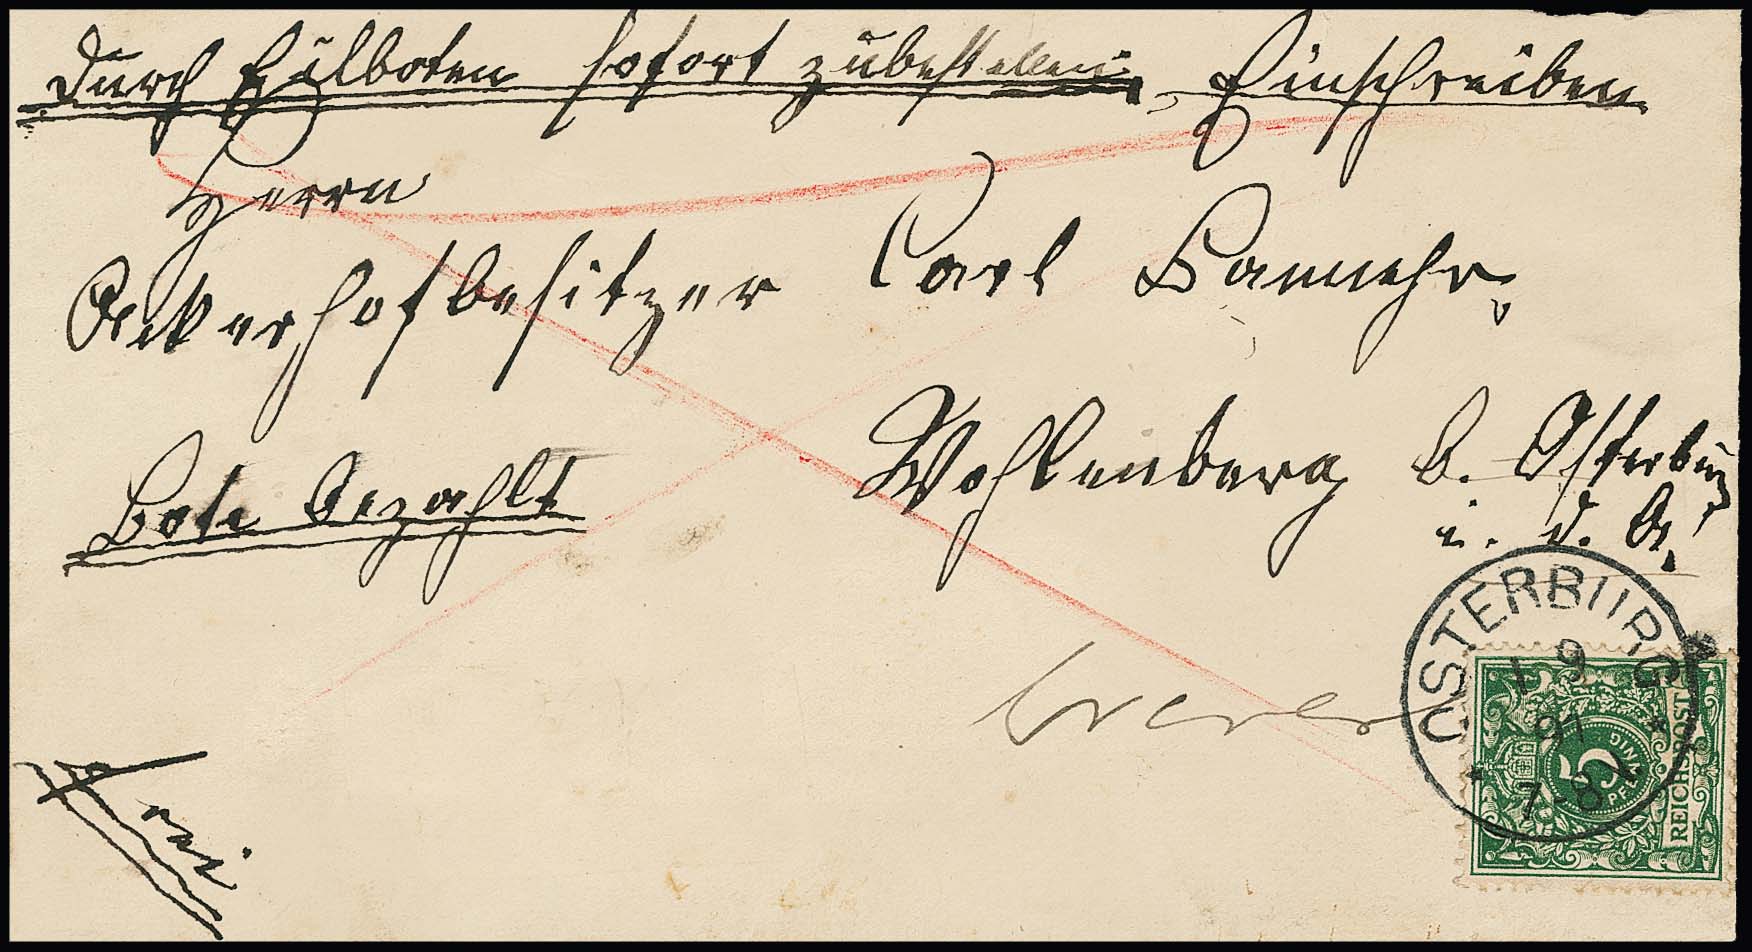 Durch Eilboten sofort zubestellen. Einschreiben
Herrn
Ackerhofbesitzer Carl
Wohlenberg b. Osterburg
i. d. A.
Bote bezahlt
frei
OSTERBURG
1 9
91
7-8
5
PFENNIG
REICHSPOST